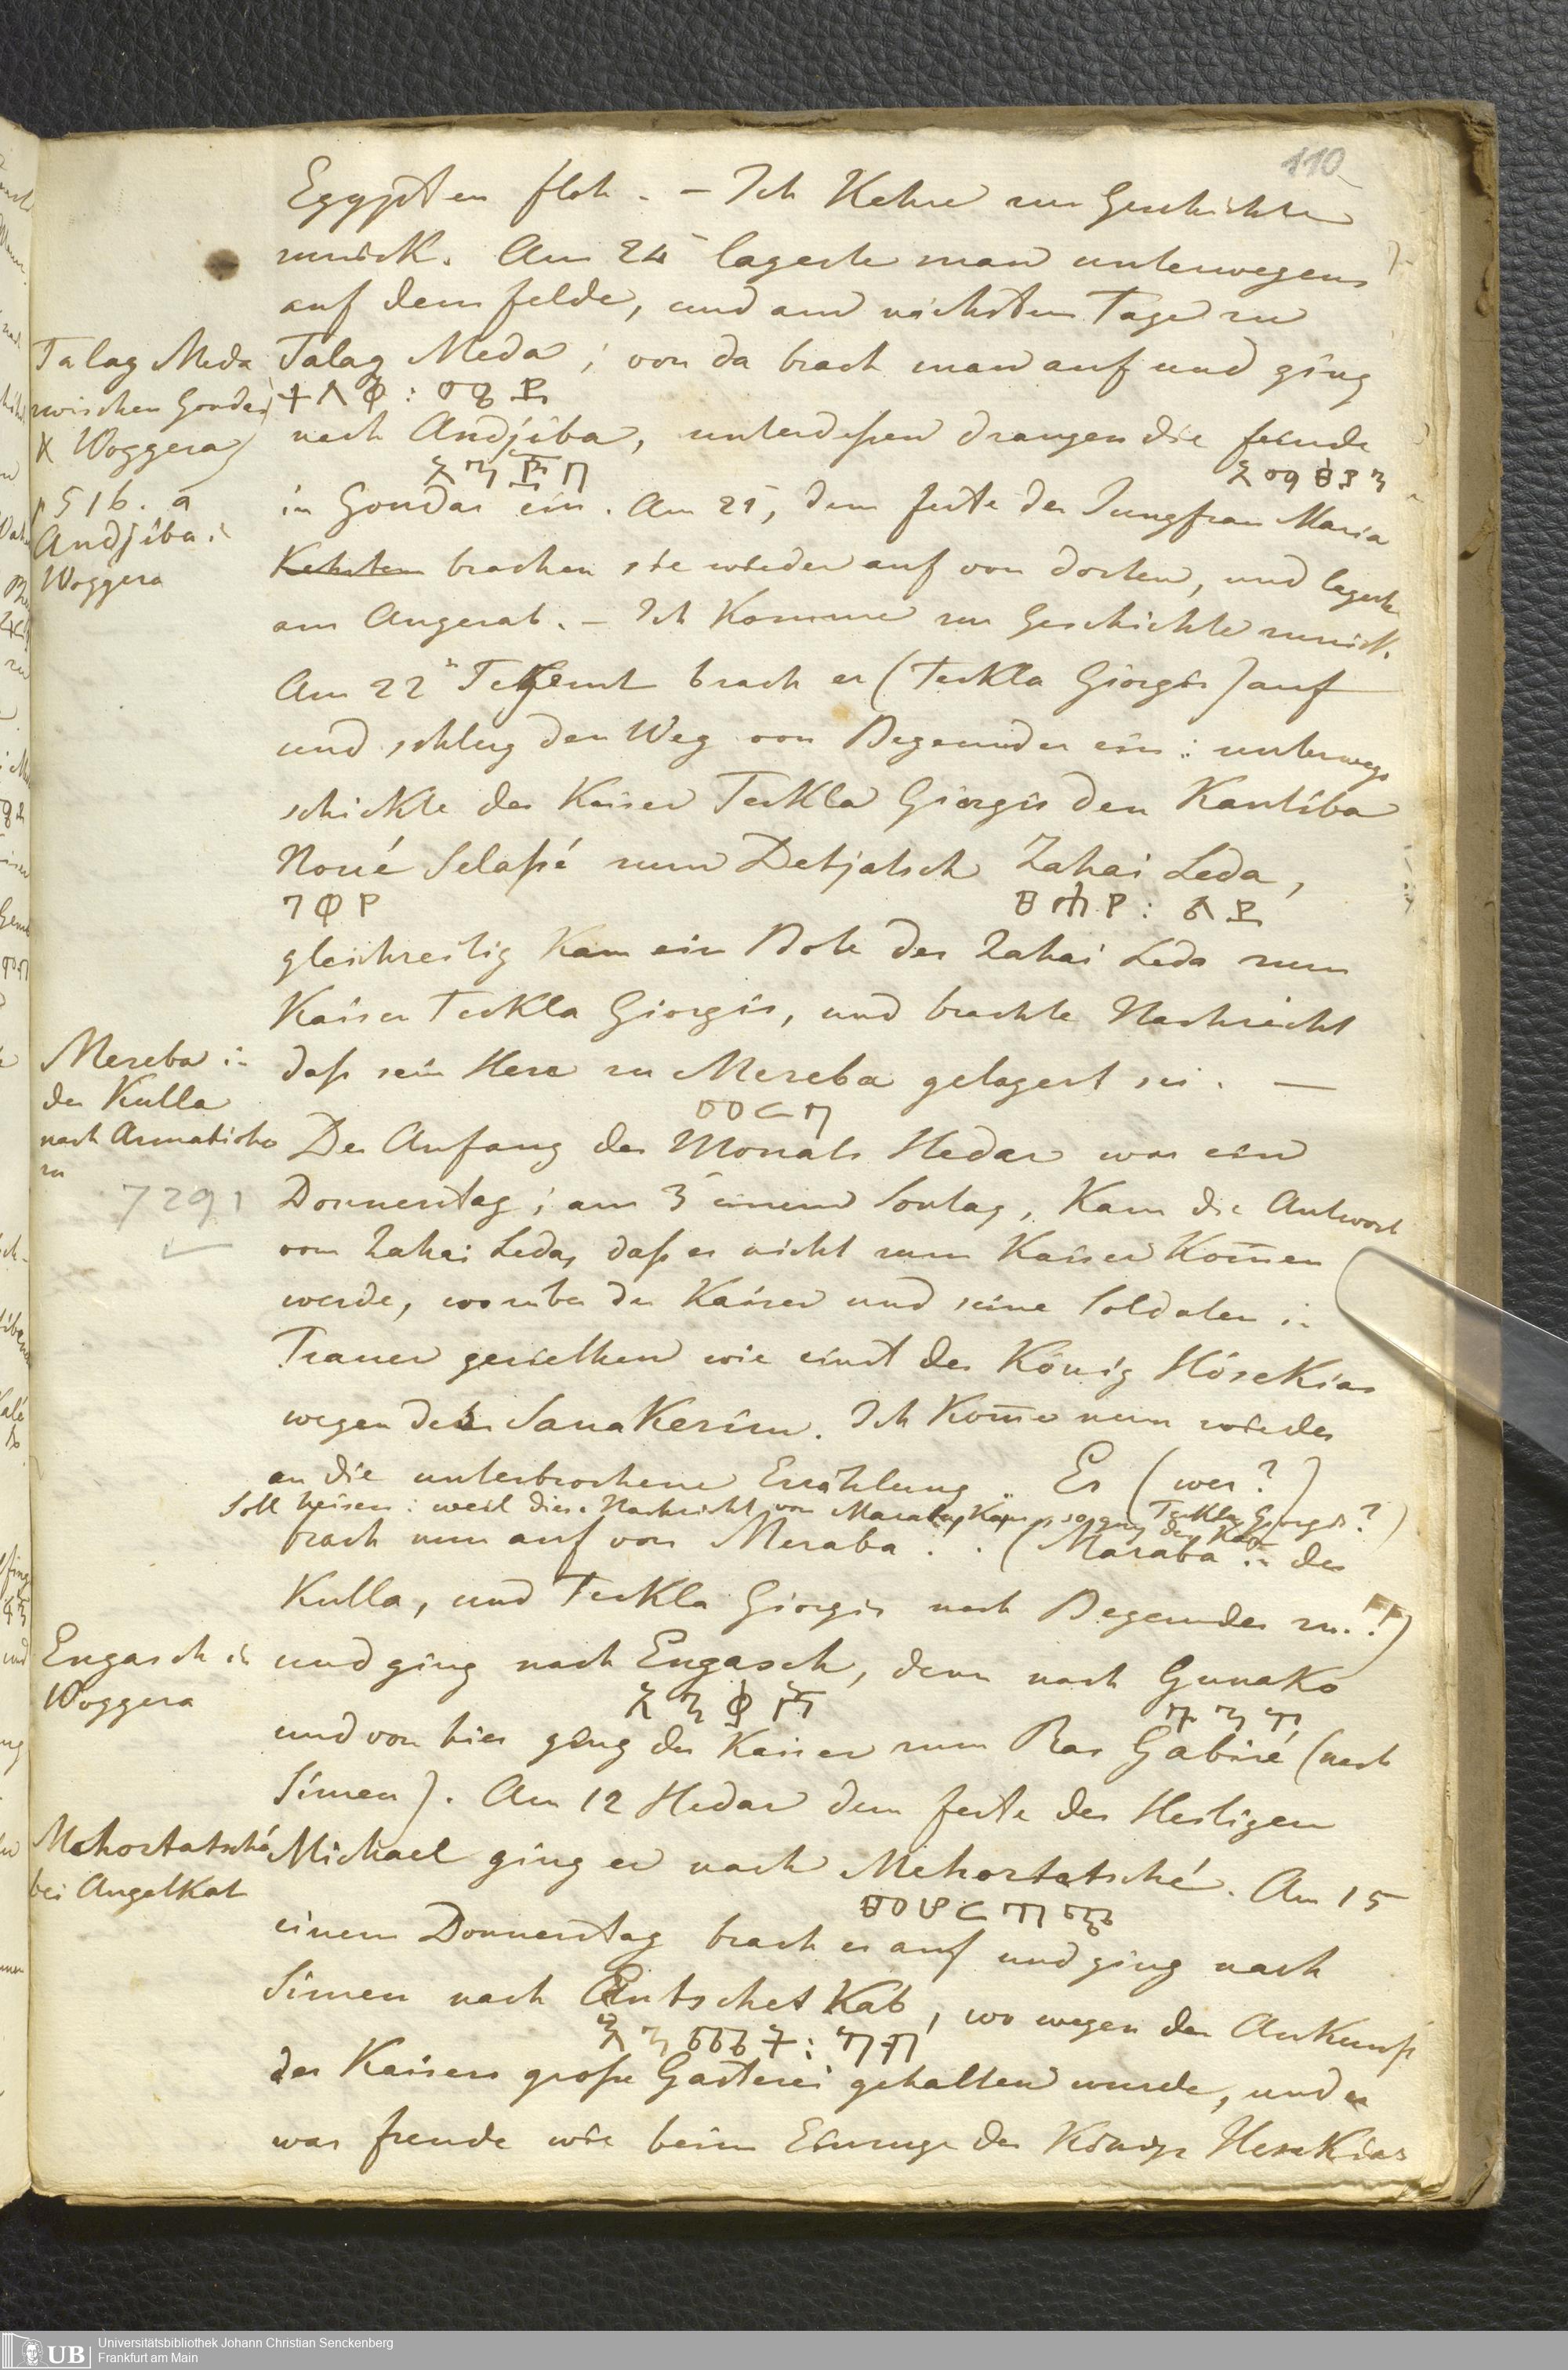 110
Egypten floh. – Ich Kehre zur Geschichte
zurück. Am 24 lagerte man unterwegens
auf dem felde, und am nächsten Tage zu
Talag Meda
zwischen Gondar
& Woggera
p 516. a
Andjiba i
Woggera
Talag Meda; von da brach man auf und ging
ተላቆ: ሜዳ
nach Andjiba, unterdeßen drangen die feinde
እንጂባ
in Gondar ein. Am 21, dem feste der Jungfrau Maria
Kehrten brachen sie wieder auf von dorten, und lagerte
am Angerab. – Ich Komme zur Geschichte zurück.
Am 22 Tekemt brach er (Teckla Giorgis) auf
und schlug den Weg von Begemder ein: unterwegs
schickte der Kaiser Teckla Giorgis den Kantiba
Noué Selaßé zum Detjatsch Zahai Leda,
ፀሐይ: ልዳ
gleichzeitig Kam ein Bote des Zahai Leda zum
Kaiser Teckla Giorgis, und brachte Nachricht
daß sein Herr zu Mereba gelagert sei. —
መረባ
Mereba in
der Kulla
nach Armatscho
zu
7291
Der Anfang des Monats Hedar war ein
Donnerstag; am 3 einem Sontag, Kam die Antwort
vom Zahai Leda, daß er nicht zum Kaiser Kom̅en
werde, worüber der Kaiser und seine Soldaten in
Trauer geriethen wie einst der König Hösekias
wegen des Sanakerim. Ich Kom̅e nun wieder
an die unterbrochene Erzählung .. Er (wer?)
Soll heisen: weil diese Nachricht von Maraba Kam, so ging Teckla Giorgis?)
brach nun auf von Meraba.. (Maraba in der
Kulla, und Teckla Giorgis nach Begemder zu.!?)
und ging nach Engasch, dann nach Gunako
Engasch in
Woggera
እንቃሽ
ጉንኮ
und von hier ging der Kaiser zum Ras Gabiré (nach
Simen). Am 12 Hedar dem feste des Heiligen
Mehortatsché
bei Angelkat
Michael ging er nach Mehortatsché. Am 15
einem Donnerstag brach er auf und ging nach
Simen nach Entschet Kab, wo wegen der Ankunft
እንጨት: ካብ
des Kaisers große Gasterei gehalten wurde, und es
war freude wie beim Einzuge des Königs Hesekias
UB
Universitätsbibliothek Johann Christian Senckenberg
Frankfurt am Main